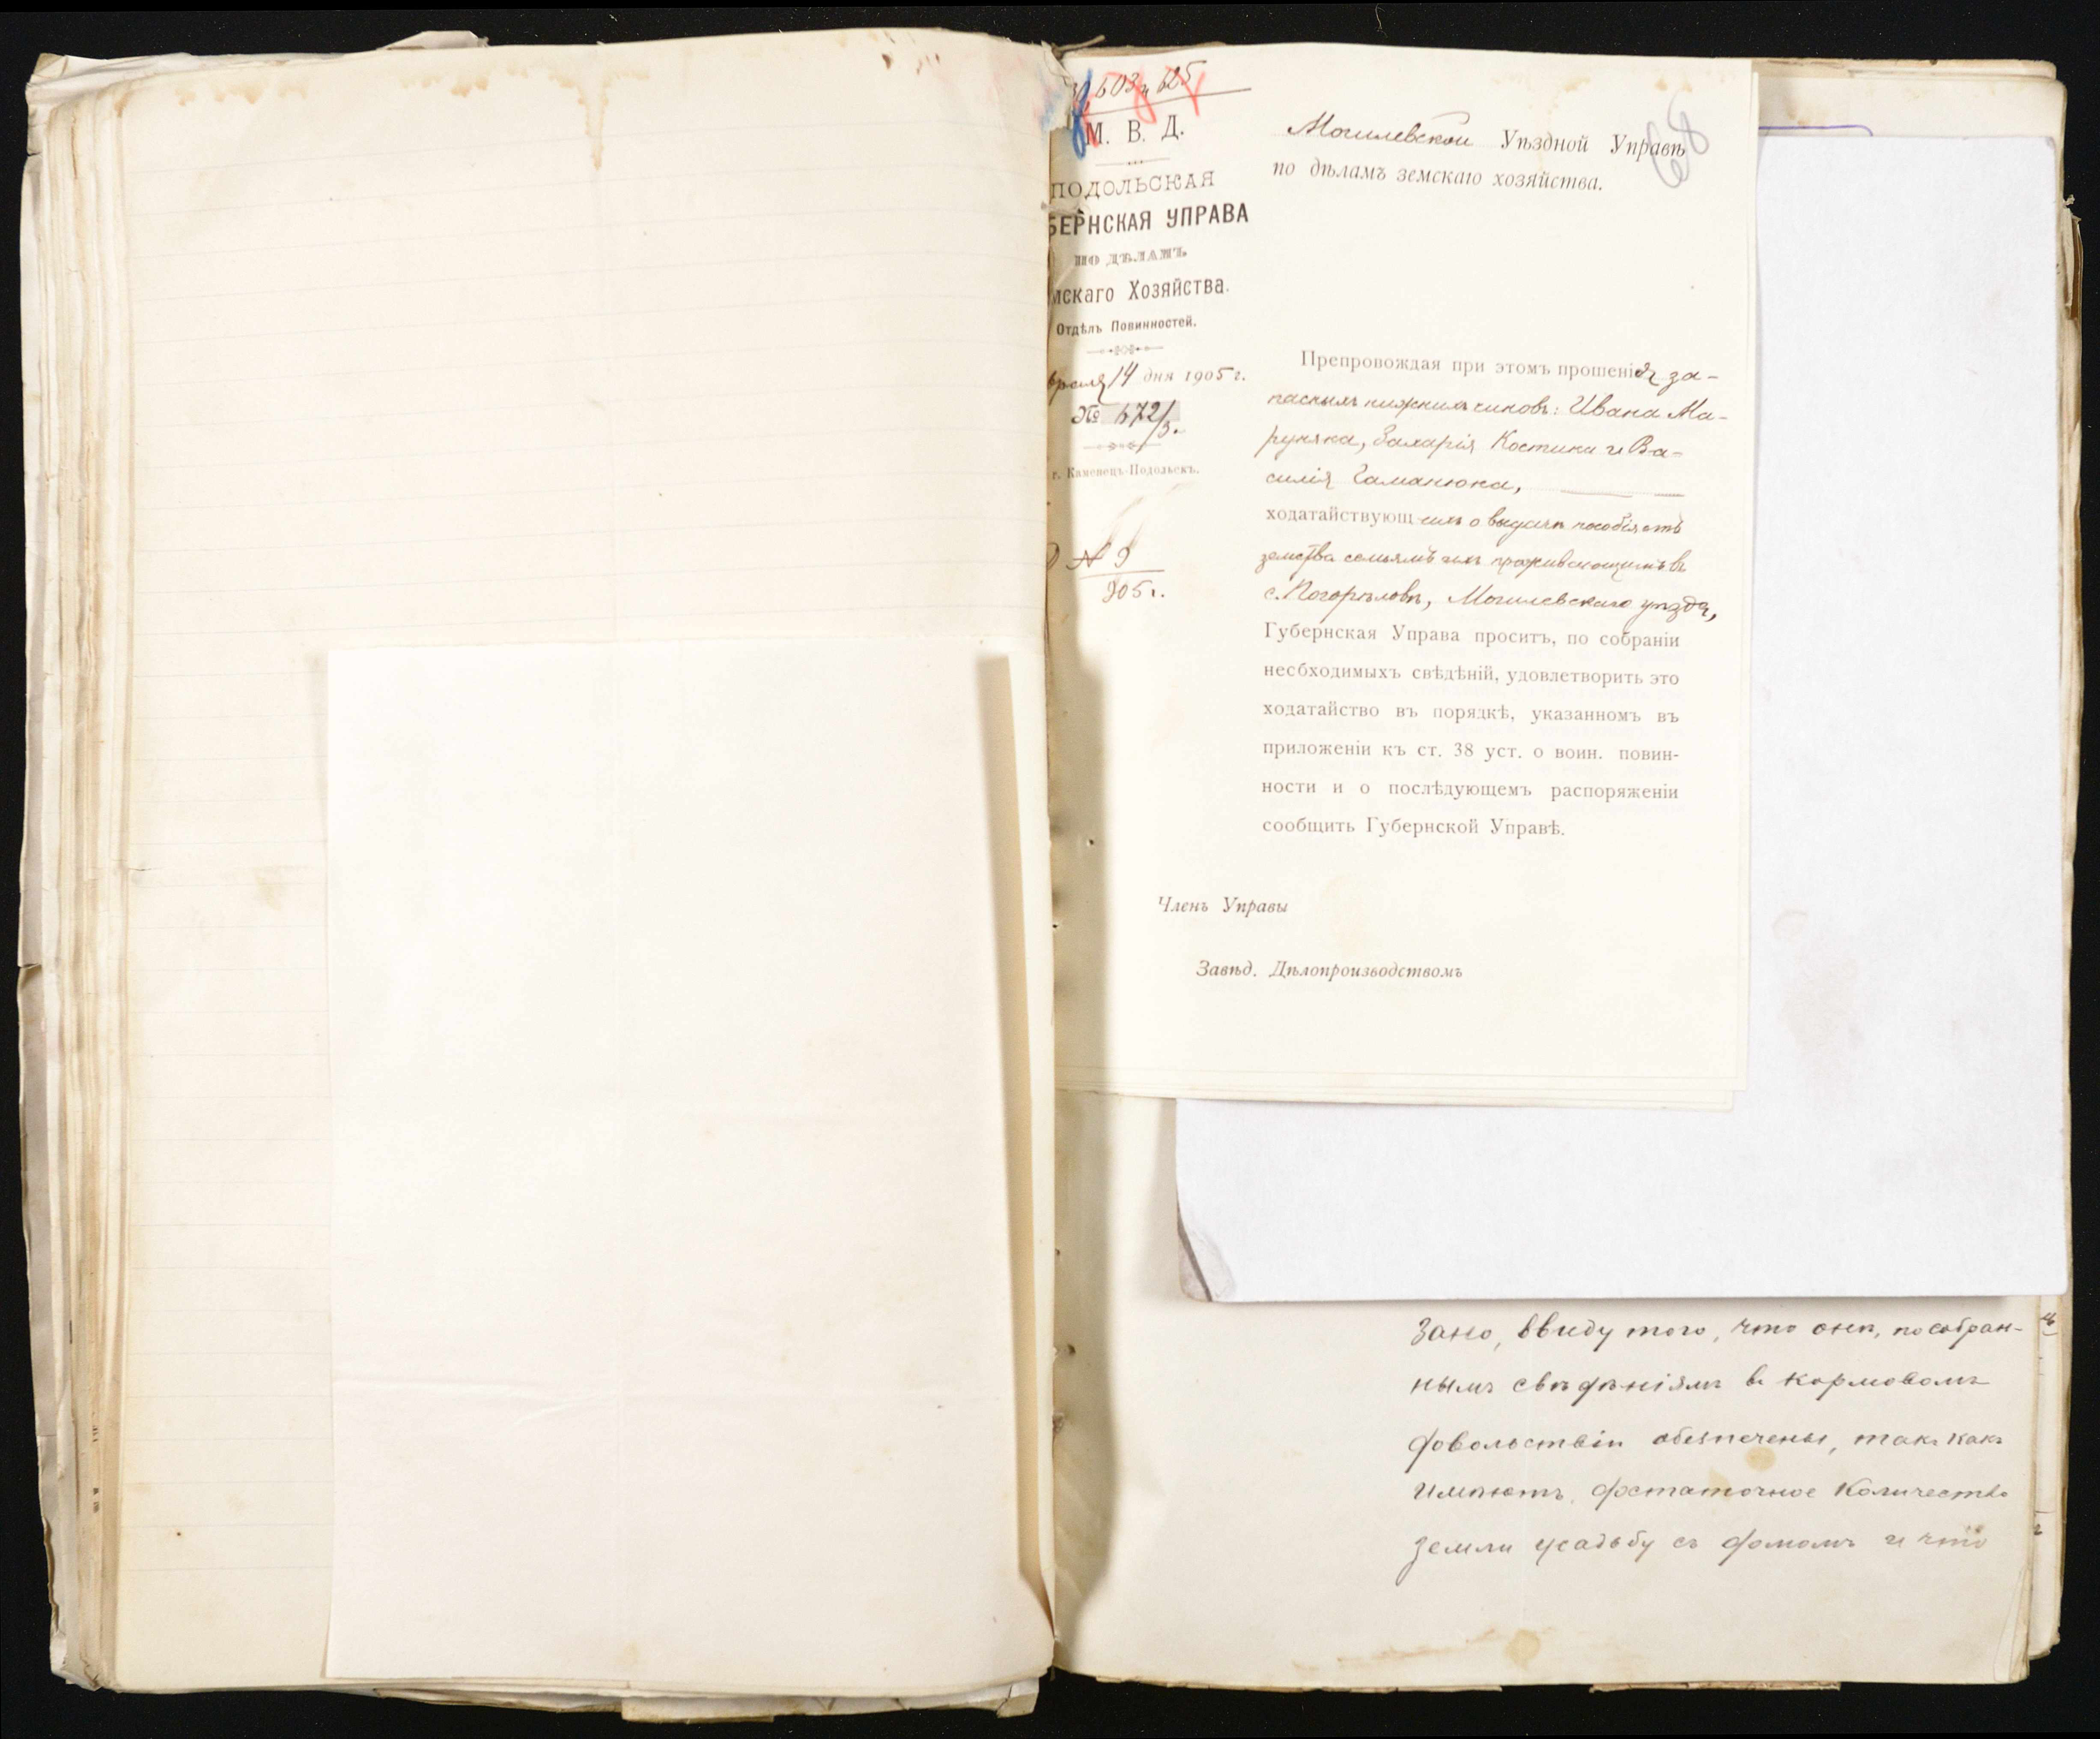 603 и 625
М. В. Д.
ПОДОЛЬСКАЯ
БЕРНСКАЯ УПРАВА
ПО ДѢЛАМЪ
мскаго Хозяйства.
Отдѣлъ Повинностей.
враля 14 дня 1905 г.
№ 672/3.
г. Каменецъ-Подольскъ.
№ 9
905 г.
68
Могилевской Уѣздной Управѣ
по дѣламъ земскаго хозяйства.
Препровождая при этомъ прошенія за-
пасныхъ нижнихъ чиновъ: Ивана Ма-
руняка, Захарія Костики и Ва-
силія Гаманюка,
ходатайствующихъ о выдачѣ пособія отъ
земства семьямъ ихъ проживающимъ въ
с. Погорѣловѣ, Могилевскаго уѣзда,
Губернская Управа проситъ, по собраніи
несбходимыхъ свѣдѣній, удовлетворить это
ходатайство въ порядкѣ, указанномъ въ
приложеніи къ ст. 38 уст. о воин. повин-
ности и о послѣдующемъ распоряженіи
сообщить Губернской Управѣ.
Членъ Управы
Завѣд. Дѣлопроизводствомъ
зано, ввиду того, что они, по собран-
нымъ свѣдѣніямъ въ кормовомъ
довольствіи обезпечены, такъ какъ
имѣютъ достаточное количество
земли усадьбу съ домомъ и что